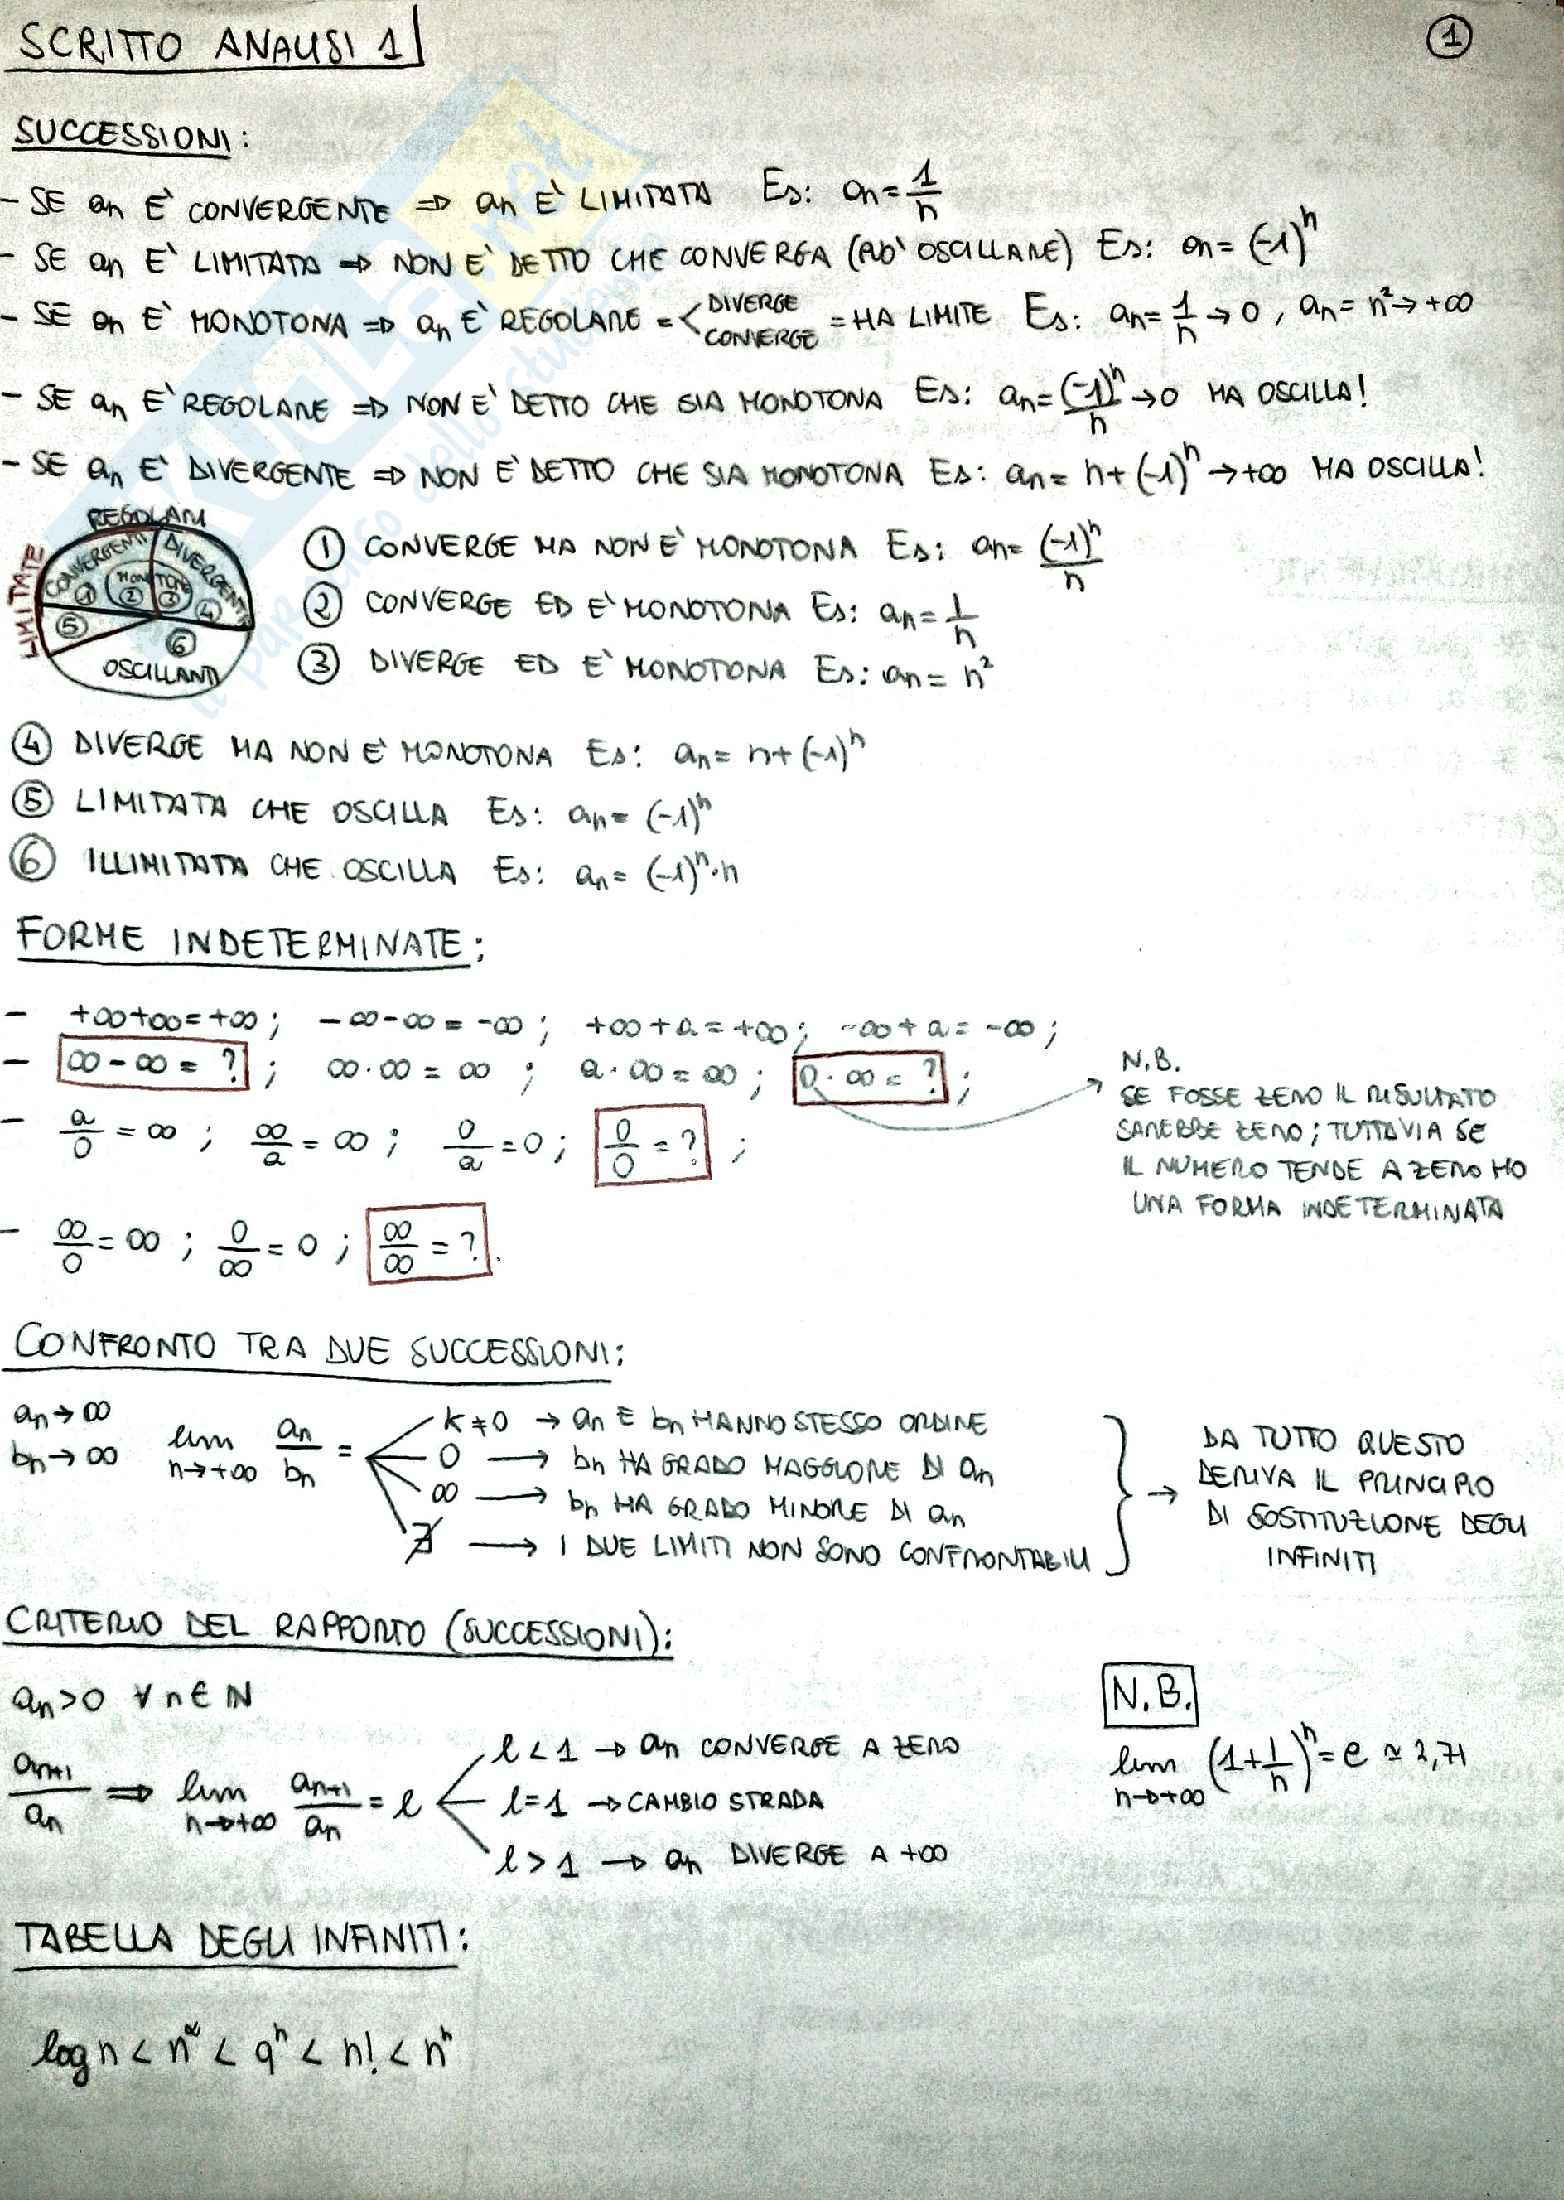 SCRITTO ANALISI 1
1
SUCCESSIONI:
- SE an E' CONVERGENTE ⇒ an E' LIMITATA Es: an = 1/n
- SE an E' LIMITATA ⇒ NON E' DETTO CHE CONVERGA (PUO' OSCILLARE) Es: an = (-1)^n
- SE an E' MONOTONA ⇒ an E' REGOLARE = < DIVERGE CONVERGE = HA LIMITE Es: an = 1/n → 0, an = n² → +∞
- SE an E' REGOLARE ⇒ NON E' DETTO CHE SIA MONOTONA Es: an = (-1)^n/n → 0 MA OSCILLA!
- SE an E' DIVERGENTE ⇒ NON E' DETTO CHE SIA MONOTONA Es: an = n+(-1)^n → +∞ MA OSCILLA!
REGOLARI
LIMITATE
CONVERGENTI DIVERGENTI
MONOTONE
1 2 3 4
5 6
OSCILLANTI
① CONVERGE MA NON E' MONOTONA Es: an = (-1)^n/n
② CONVERGE ED E' MONOTONA Es: an = 1/n
③ DIVERGE ED E' MONOTONA Es: an = n²
④ DIVERGE MA NON E' MONOTONA Es: an = n+(-1)^n
⑤ LIMITATA CHE OSCILLA Es: an = (-1)^n
⑥ ILLIMITATA CHE OSCILLA Es: an = (-1)^n·n
FORME INDETERMINATE:
- +∞+∞=+∞; -∞-∞=-∞; +∞+a=+∞; -∞+a=-∞;
- ∞-∞=?; ∞·∞=∞; a·∞=∞; 0·∞=?;
- a/0=∞; ∞/a=∞; 0/a=0; 0/0=?;
- ∞/0=∞; 0/∞=0; ∞/∞=?.
N.B.
SE FOSSE ZERO IL RISULTATO
SAREBBE ZERO; TUTTAVIA SE
IL NUMERO TENDE A ZERO HO
UNA FORMA INDETERMINATA
CONFRONTO TRA DUE SUCCESSIONI:
an → ∞
bn → ∞
lim n→+∞ an/bn =
k≠0 → an E bn HANNO STESSO ORDINE
0 → bn HA GRADO MAGGIORE DI an
∞ → bn HA GRADO MINORE DI an
∄ → I DUE LIMITI NON SONO CONFRONTABILI
→ DA TUTTO QUESTO
DERIVA IL PRINCIPIO
DI SOSTITUZIONE DEGLI
INFINITI
CRITERIO DEL RAPPORTO (SUCCESSIONI):
an>0 ∀ n∈N
an+1/an ⇒ lim n→+∞ an+1/an = l
l<1 → an CONVERGE A ZERO
l=1 → CAMBIO STRADA
l>1 → an DIVERGE A +∞
N.B.
lim n→+∞ (1+1/n)^n = e ≃ 2,71
TABELLA DEGLI INFINITI:
log n < n^α < q^n < n! < n^n
SKUOLA.net
il paradiso dello studente